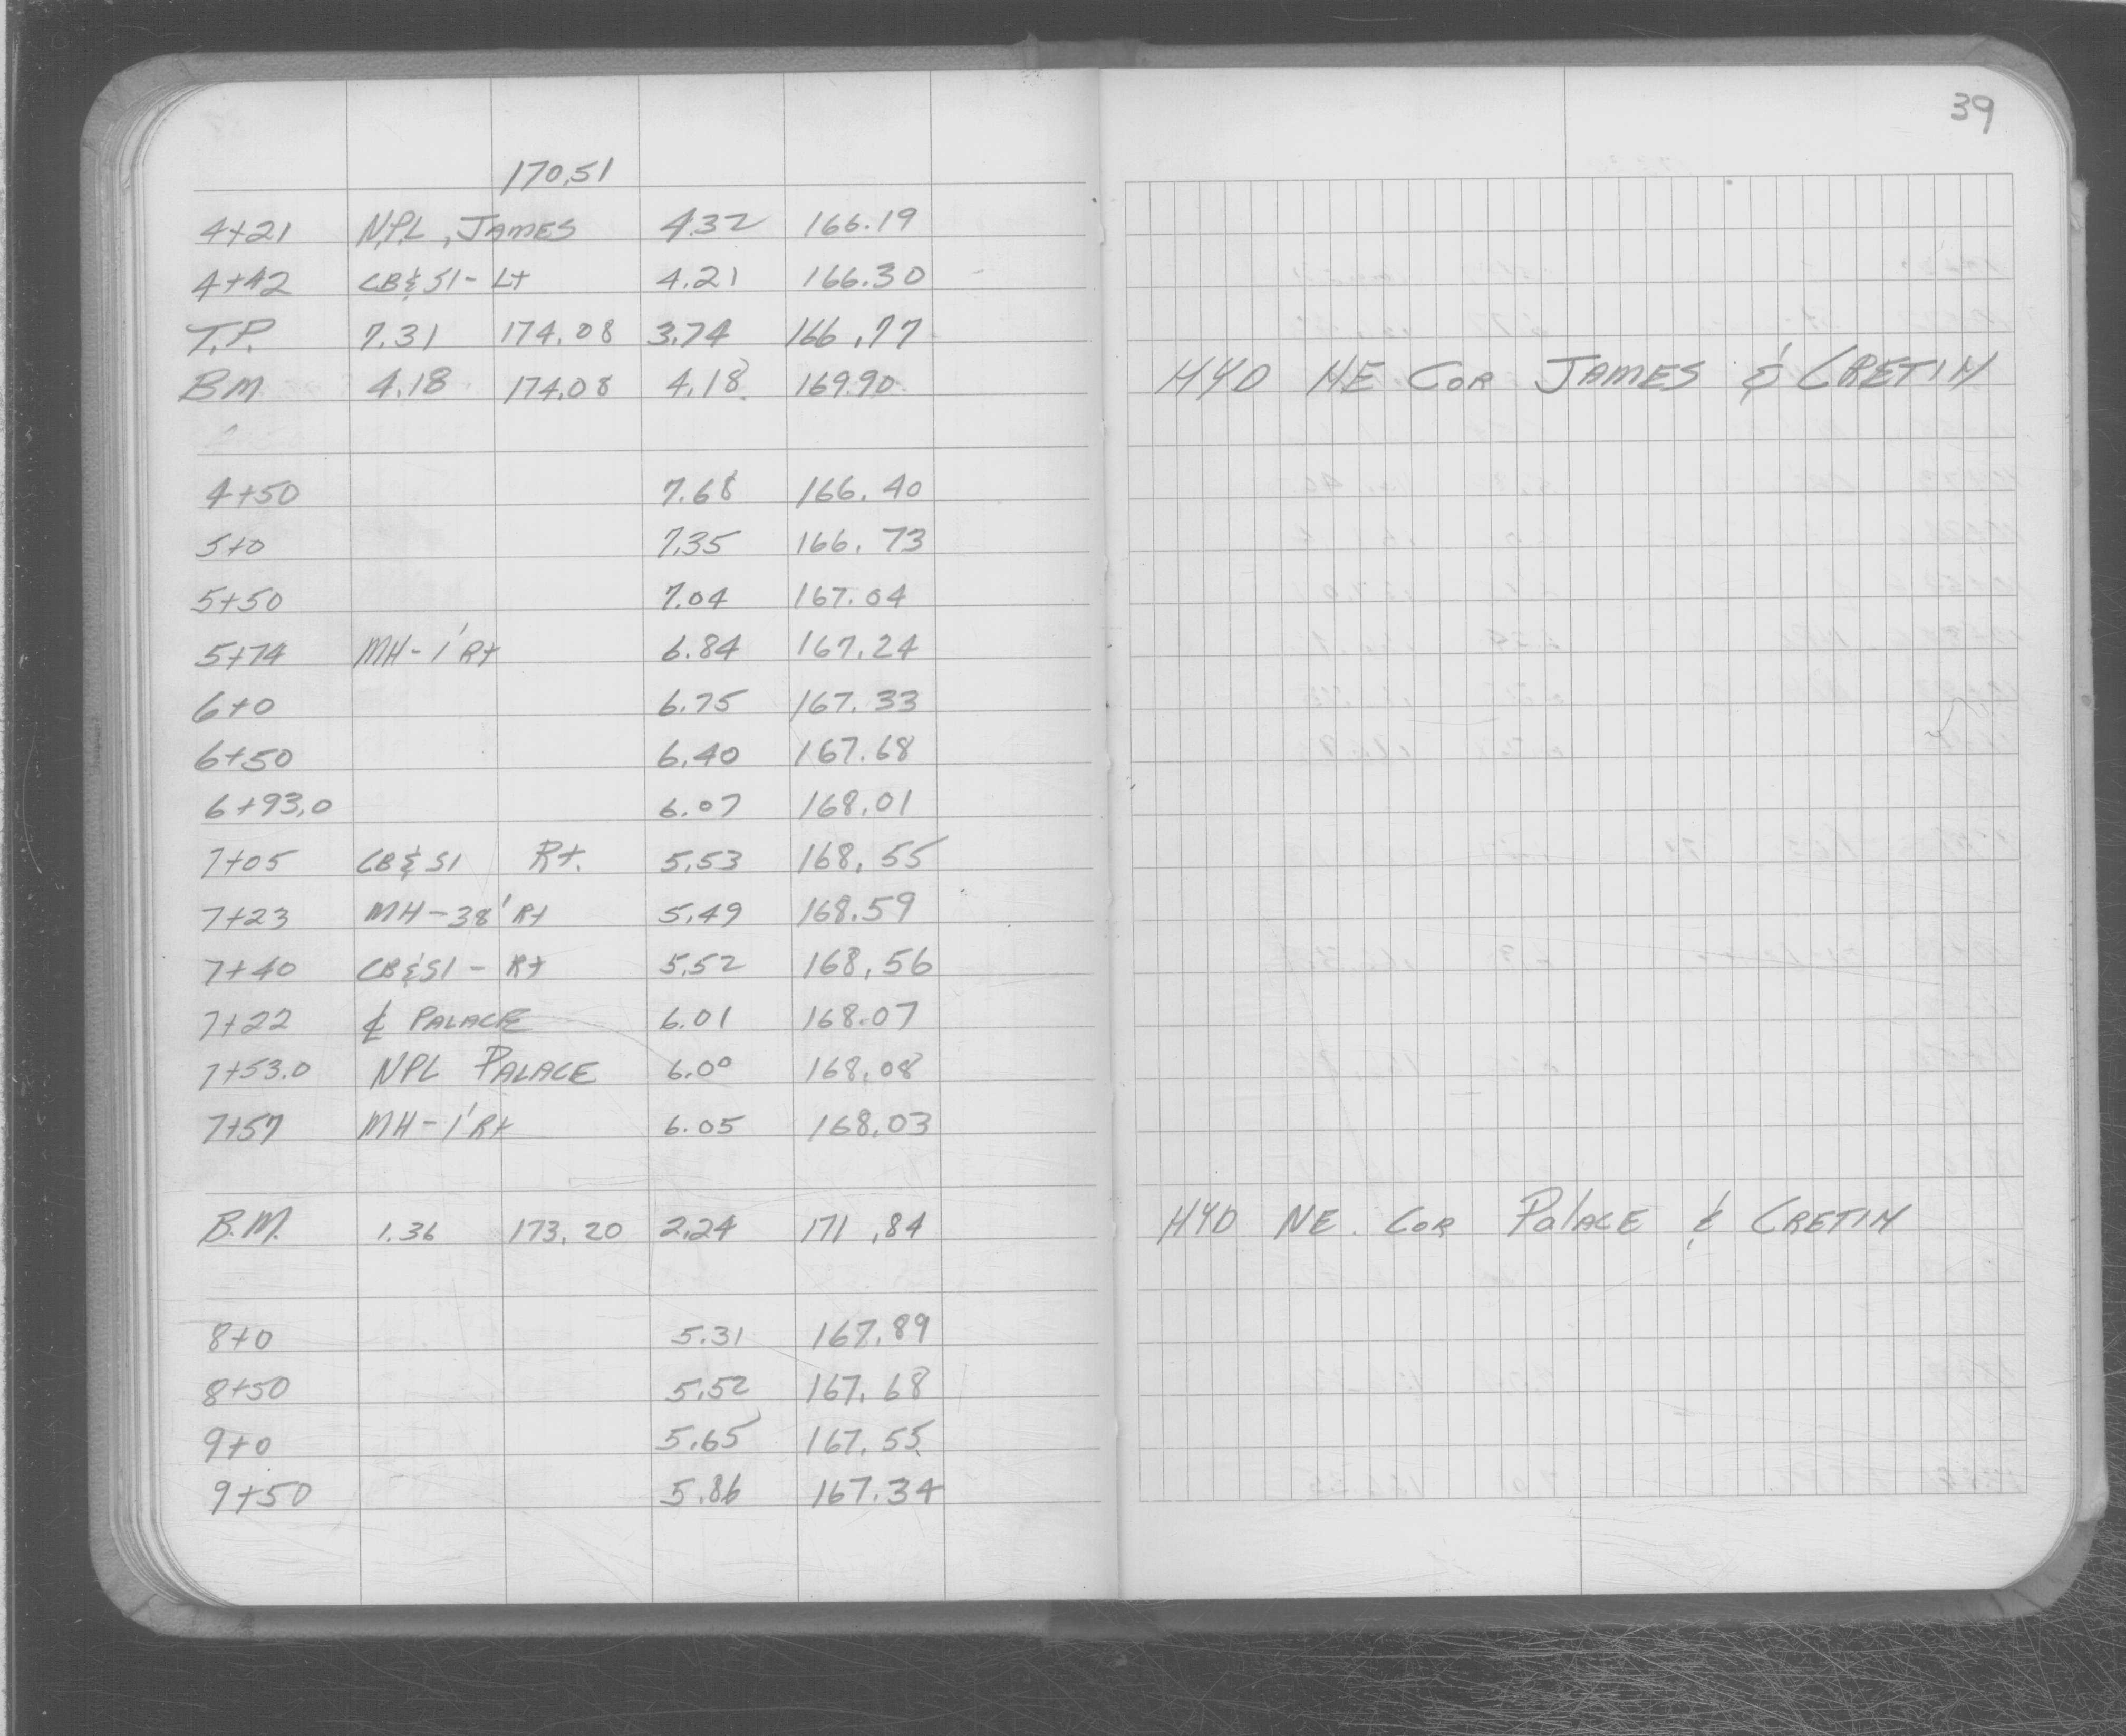 39
170.51
4+21 N.P.L, JAMES 4.32 166.19
4+42 CB&SI- Lt 4.21 166.30
T.P. 7.31 174.08 3.74 166.77
BM 4.18 174.08 4.18 169.90 HYD NE COR JAMES & CRETIN
4+50 7.68 166.40
5+0 7.35 166.73
5+50 7.04 167.04
5+74 MH-1' Rt 6.84 167.24
6+0 6.75 167.33
6+50 6.40 167.68
6+93.0 6.07 168.01
7+05 CB&SI Rt. 5.53 168.55
7+23 MH-38' Rt 5.49 168.59
7+40 CB&SI - Rt 5.52 168.56
7+22 ℄ PALACE 6.01 168.07
7+53.0 NPL PALACE 6.00 168.08
7+57 MH-1' Rt 6.05 168.03
B.M. 1.36 173.20 2.24 171.84 HYD NE. COR PalACE & CRETIN
8+0 5.31 167.89
8+50 5.52 167.68
9+0 5.65 167.55
9+50 5.86 167.34